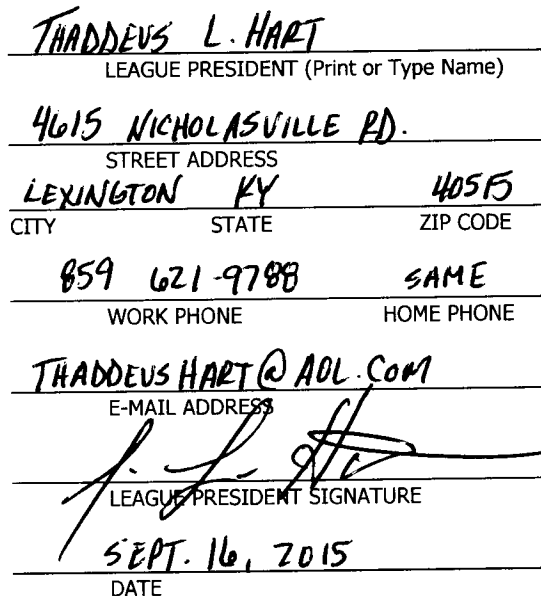 THADDEUS L. HART
LEAGUE PRESIDENT (Print or Type Name)
4615 NICHOLASVILLE RD.
STREET ADDRESS
LEXINGTON KY 40515
CITY STATE ZIP CODE
859 621-9788 SAME
WORK PHONE HOME PHONE
THADDEUS HART@AOL.COM
E-MAIL ADDRESS
LEAGUE PRESIDENT SIGNATURE
SEPT. 16, 2015
DATE